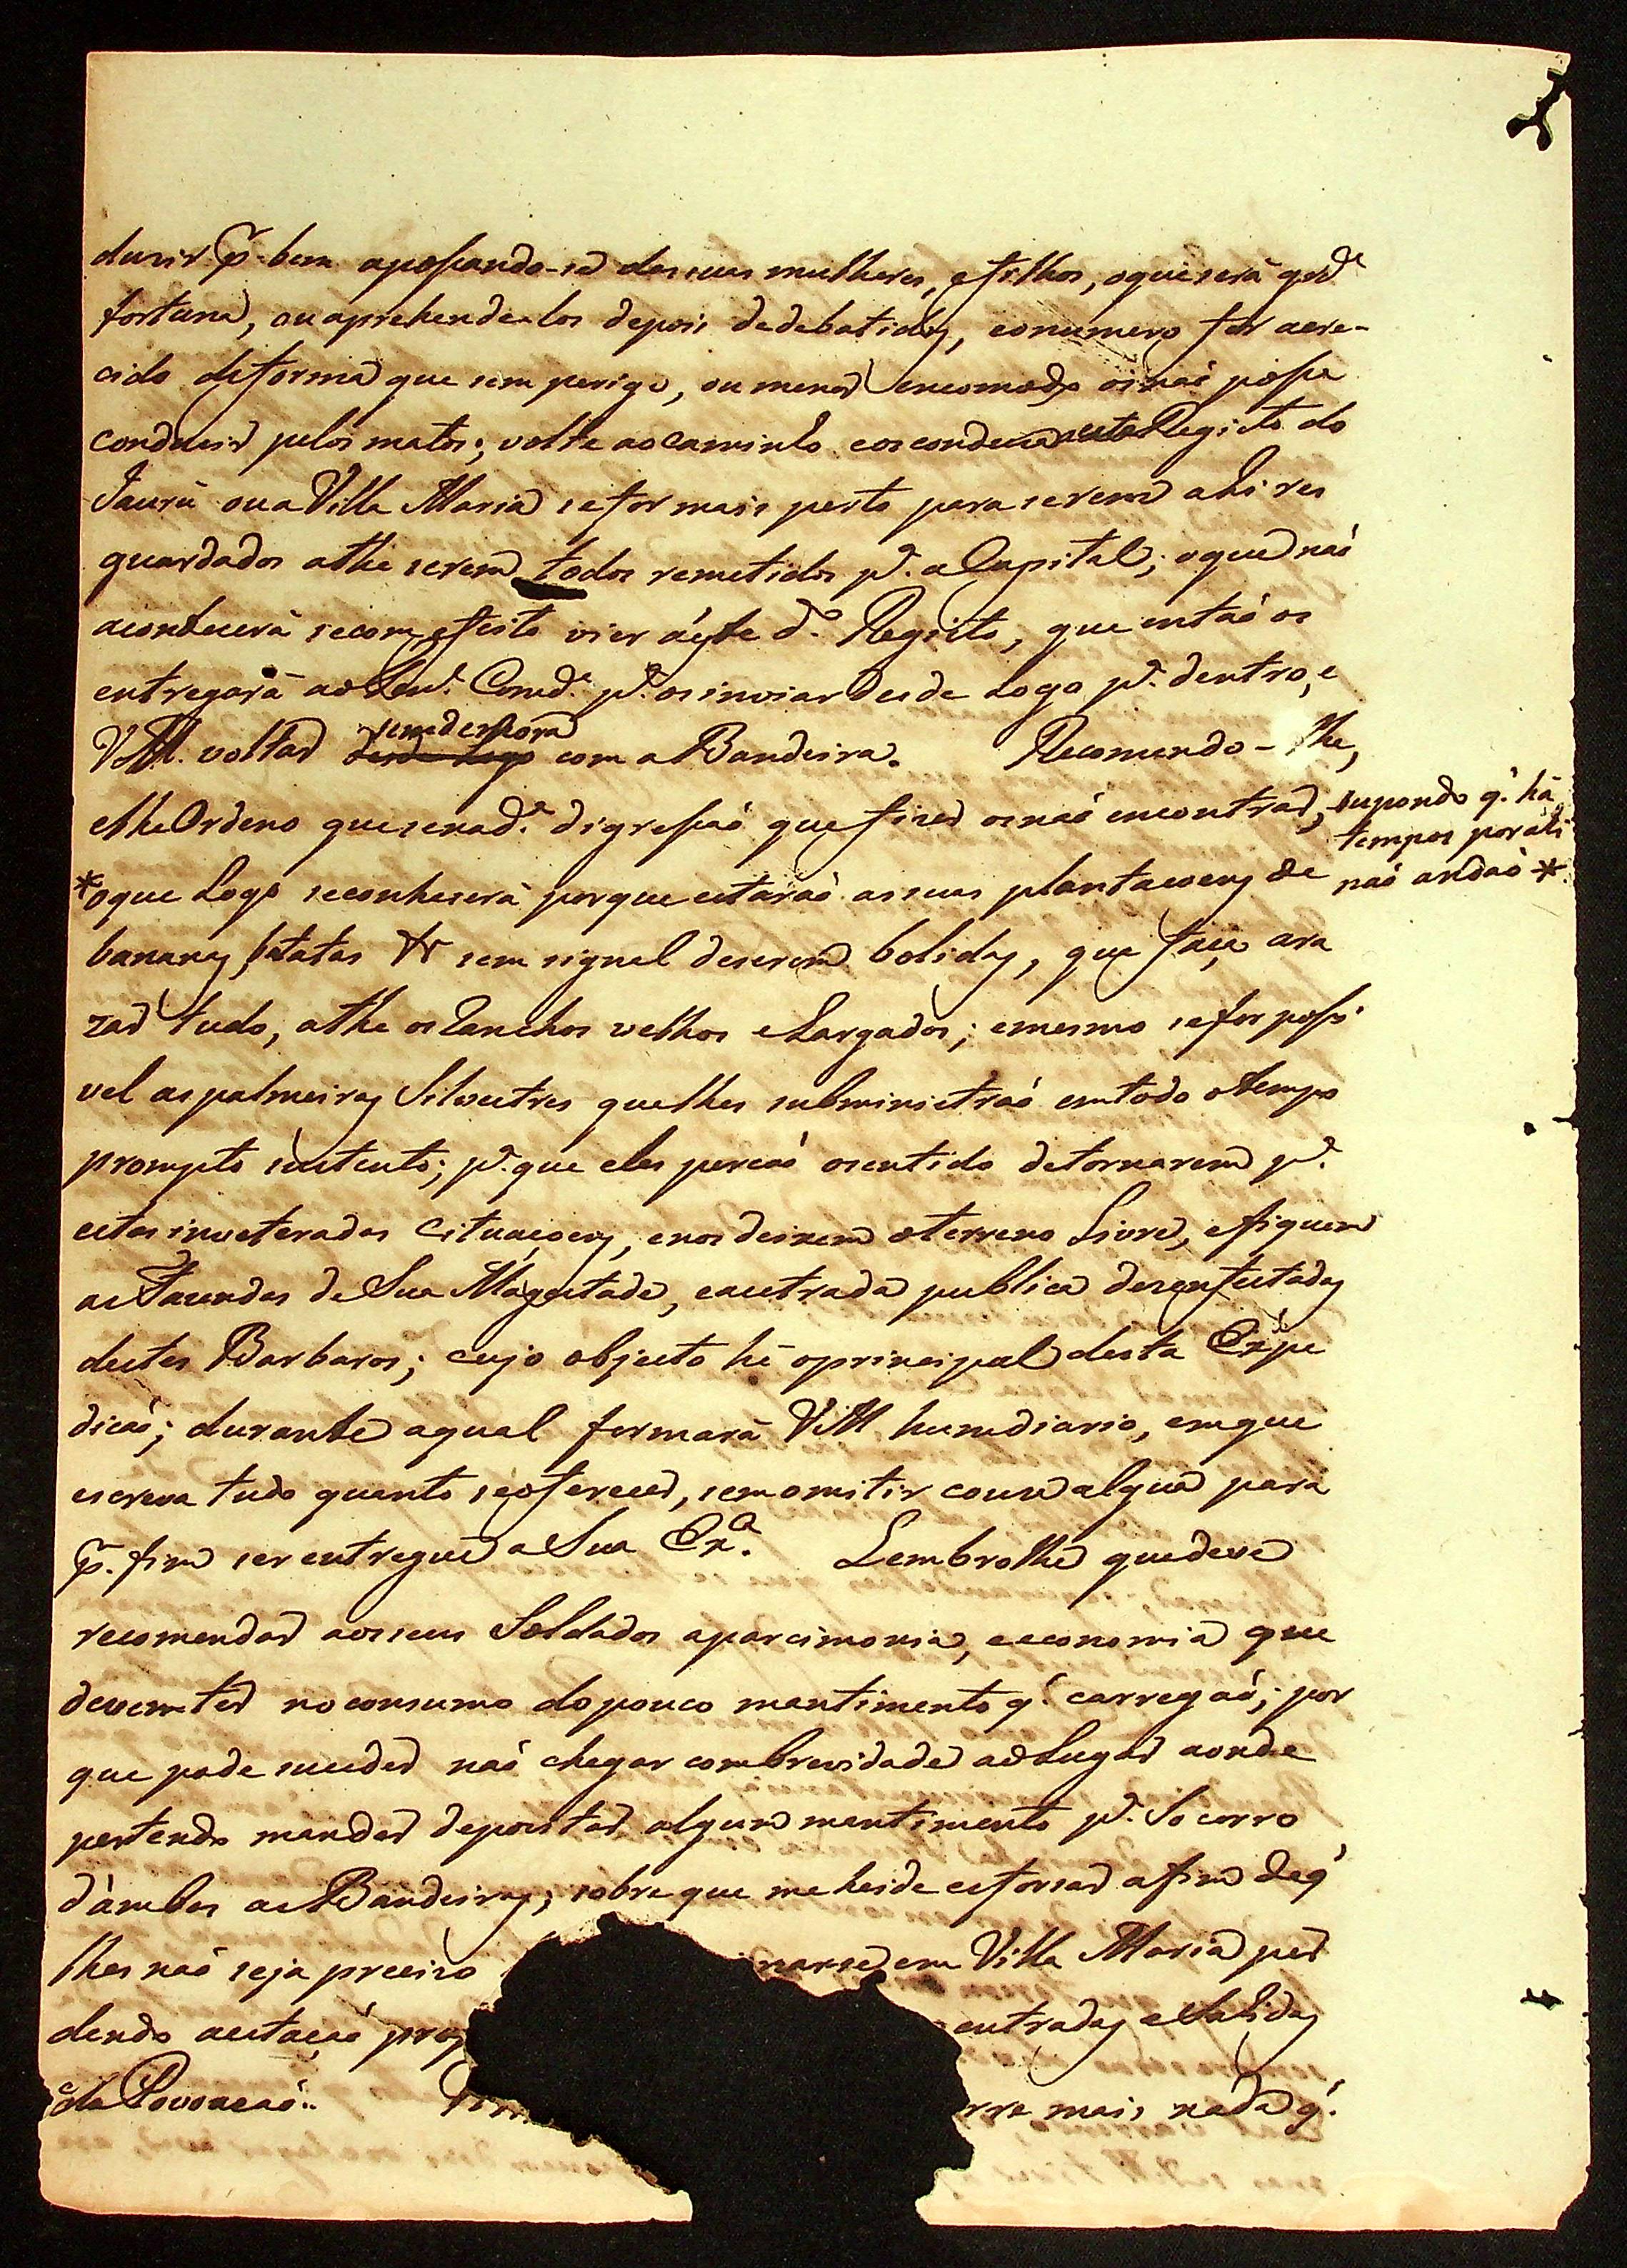 duzir p.r bem apossando-se das suas mulheres, e filhos, o que será gr.de
fortuna, ou aprehende-los depois de debatidos, e o numero for acre-
cido de forma que sem perigo, ou menos encomodo os naõ possa
conduzir pelos matos; volte ao caminho e os conduza a este Registo do
Jaurú ou a Villa Maria se for mais perto para serem ahi res
guardados athe serem todos remetidos p.a a Capital; o que naõ
acontecerá se com efeito vier á este d.o Registo, que entaõ os
entregará ao Com.de p.a os inviar desde Logo p.a dentro, e
VM. voltar sem demora desde Logo com a Bandeira. Recomendo-lhe,
e lhe Ordeno que se na d.a digressaõ que fizer os naõ encontrar, supondo q' há
tempos por ali
naõ andaõ *
* o que Logo reconhecerá porque estaraõ as suas plantacoens de
bananas, batatas &c sem signal de serem bolidas, que faça ara
zar tudo, athe os Ranchos velhos e Largados; e mesmo se for possi
vel as palmeiras Silvestres que lhes subministraõ em todo o tempo
prompto sustento; p.a que eles percaõ o sentido de tornarem p.a
estas inveteradas Cituaçoens, e nos deixem o terreno Livre, e fiquem
as Fazendas de Sua Magestade, e a estrada publica desenfestadas
destes Barbaros; cujo objecto hé o principal desta Expe
dicaõ; durante a qual formará VM hum diario, em que
escreva tudo quanto se oferecer, sem omitir couza algua para
p.r fim ser entregue a Sua Ex.a Lembrolhe que deve
recomendar aos seus Soldados a parcimonia, e economia que
devem ter no consumo do pouco mantimento q' carregaõ; por
que pode suceder naõ chegar com brevidade ao Lugar aonde
pertendo mandar depozitar algum mantimento p.a Socorro
d'ambas as Bandeiras; sobre que me heide esforsar afim de q'
lhes naõ seja precizo narse em Villa Maria per
dendo a estaçaõ entradas e Sahidas
da Povoacaõ. mais nada q'